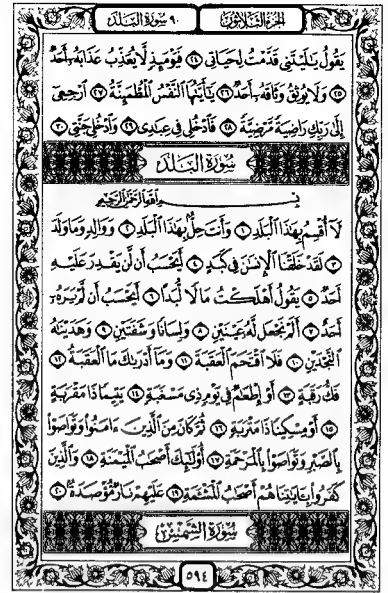 الجزء الثلاثون ٩٠ سورة البلد
يَقُولُ يَٰلَيْتَنِى قَدَّمْتُ لِحَيَاتِى ٢٤ فَيَوْمَئِذٍ لَّا يُعَذِّبُ عَذَابَهُۥٓ أَحَدٌ
٢٥ وَلَا يُوثِقُ وَثَاقَهُۥٓ أَحَدٌ ٢٦ يَٰٓأَيَّتُهَا ٱلنَّفْسُ ٱلْمُطْمَئِنَّةُ ٢٧ ٱرْجِعِىٓ
إِلَىٰ رَبِّكِ رَاضِيَةً مَّرْضِيَّةً ٢٨ فَٱدْخُلِى فِى عِبَٰدِى ٢٩ وَٱدْخُلِى جَنَّتِى ٣٠
سورة البلد
بِسْمِ ٱللَّهِ ٱلرَّحْمَٰنِ ٱلرَّحِيمِ
لَآ أُقْسِمُ بِهَٰذَا ٱلْبَلَدِ ١ وَأَنتَ حِلٌّۢ بِهَٰذَا ٱلْبَلَدِ ٢ وَوَالِدٍ وَمَا وَلَدَ
٣ لَقَدْ خَلَقْنَا ٱلْإِنسَٰنَ فِى كَبَدٍ ٤ أَيَحْسَبُ أَن لَّن يَقْدِرَ عَلَيْهِ
أَحَدٌ ٥ يَقُولُ أَهْلَكْتُ مَالًا لُّبَدًا ٦ أَيَحْسَبُ أَن لَّمْ يَرَهُۥٓ
أَحَدٌ ٧ أَلَمْ نَجْعَل لَّهُۥ عَيْنَيْنِ ٨ وَلِسَانًا وَشَفَتَيْنِ ٩ وَهَدَيْنَٰهُ
ٱلنَّجْدَيْنِ ١٠ فَلَا ٱقْتَحَمَ ٱلْعَقَبَةَ ١١ وَمَآ أَدْرَىٰكَ مَا ٱلْعَقَبَةُ ١٢
فَكُّ رَقَبَةٍ ١٣ أَوْ إِطْعَٰمٌ فِى يَوْمٍ ذِى مَسْغَبَةٍ ١٤ يَتِيمًا ذَا مَقْرَبَةٍ
١٥ أَوْ مِسْكِينًا ذَا مَتْرَبَةٍ ١٦ ثُمَّ كَانَ مِنَ ٱلَّذِينَ ءَامَنُوا۟ وَتَوَاصَوْا۟
بِٱلصَّبْرِ وَتَوَاصَوْا۟ بِٱلْمَرْحَمَةِ ١٧ أُو۟لَٰٓئِكَ أَصْحَٰبُ ٱلْمَيْمَنَةِ ١٨ وَٱلَّذِينَ
كَفَرُوا۟ بِـَٔايَٰتِنَا هُمْ أَصْحَٰبُ ٱلْمَشْـَٔمَةِ ١٩ عَلَيْهِمْ نَارٌ مُّؤْصَدَةٌۢ ٢٠
سورة الشمس
٥٩٤